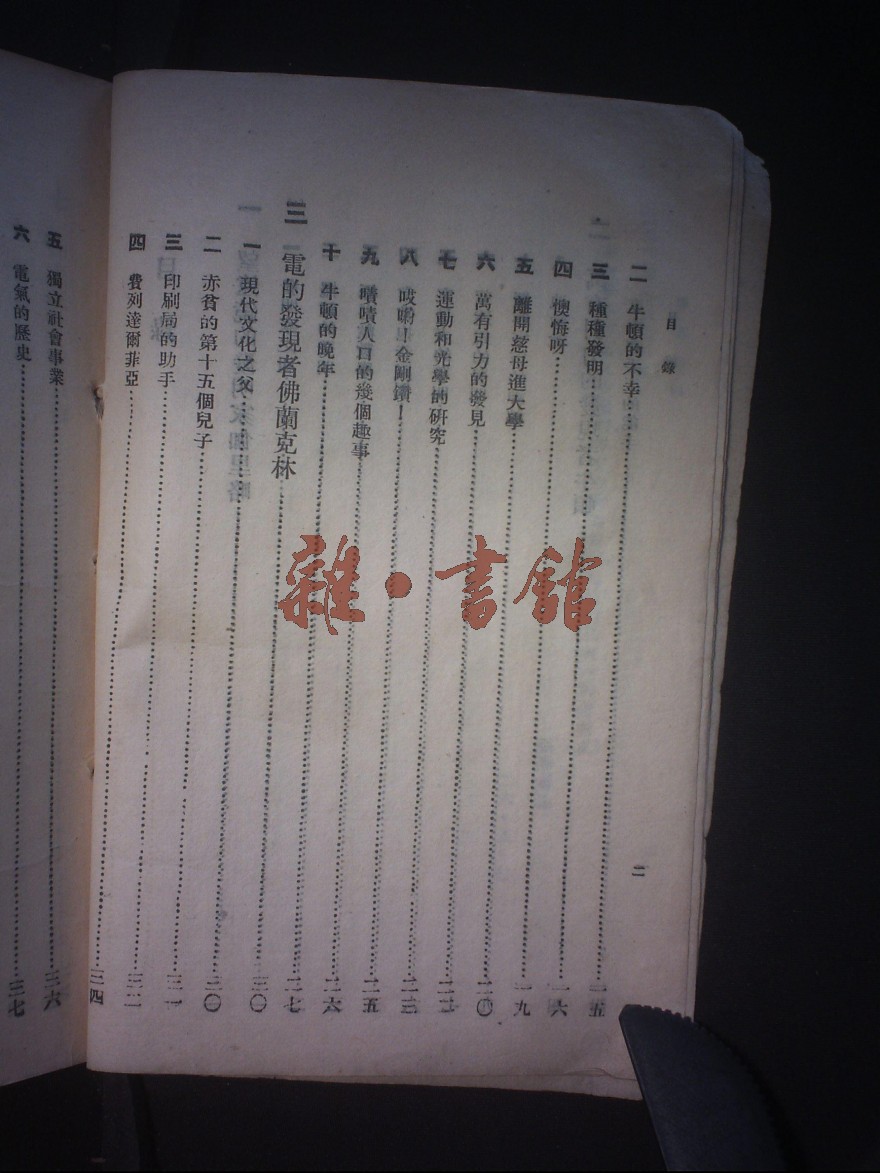 目錄
二
二 牛頓的不幸……一五
三 種種發明……一六
四 懊悔呀……一九
五 離開慈母進大學……二〇
六 萬有引力的發見……二二
七 運動和光學的研究……二三
八 哎喲！金剛鑽！……二五
九 嘖嘖人口的幾個趣事……二六
十 牛頓的晚年……二七
三 電的發現者佛蘭克林……三〇
一 現代文化之父……三〇
二 赤貧的第十五個兒子……三一
三 印刷局的助手……三二
四 費列達爾菲亞……三四
五 獨立社會事業……三六
六 電氣的歷史……三七
雜·書館